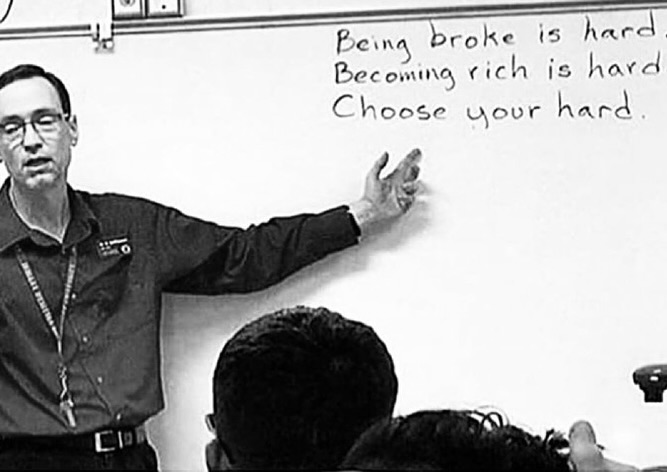 Being broke is hard.
Becoming rich is hard
Choose your hard.